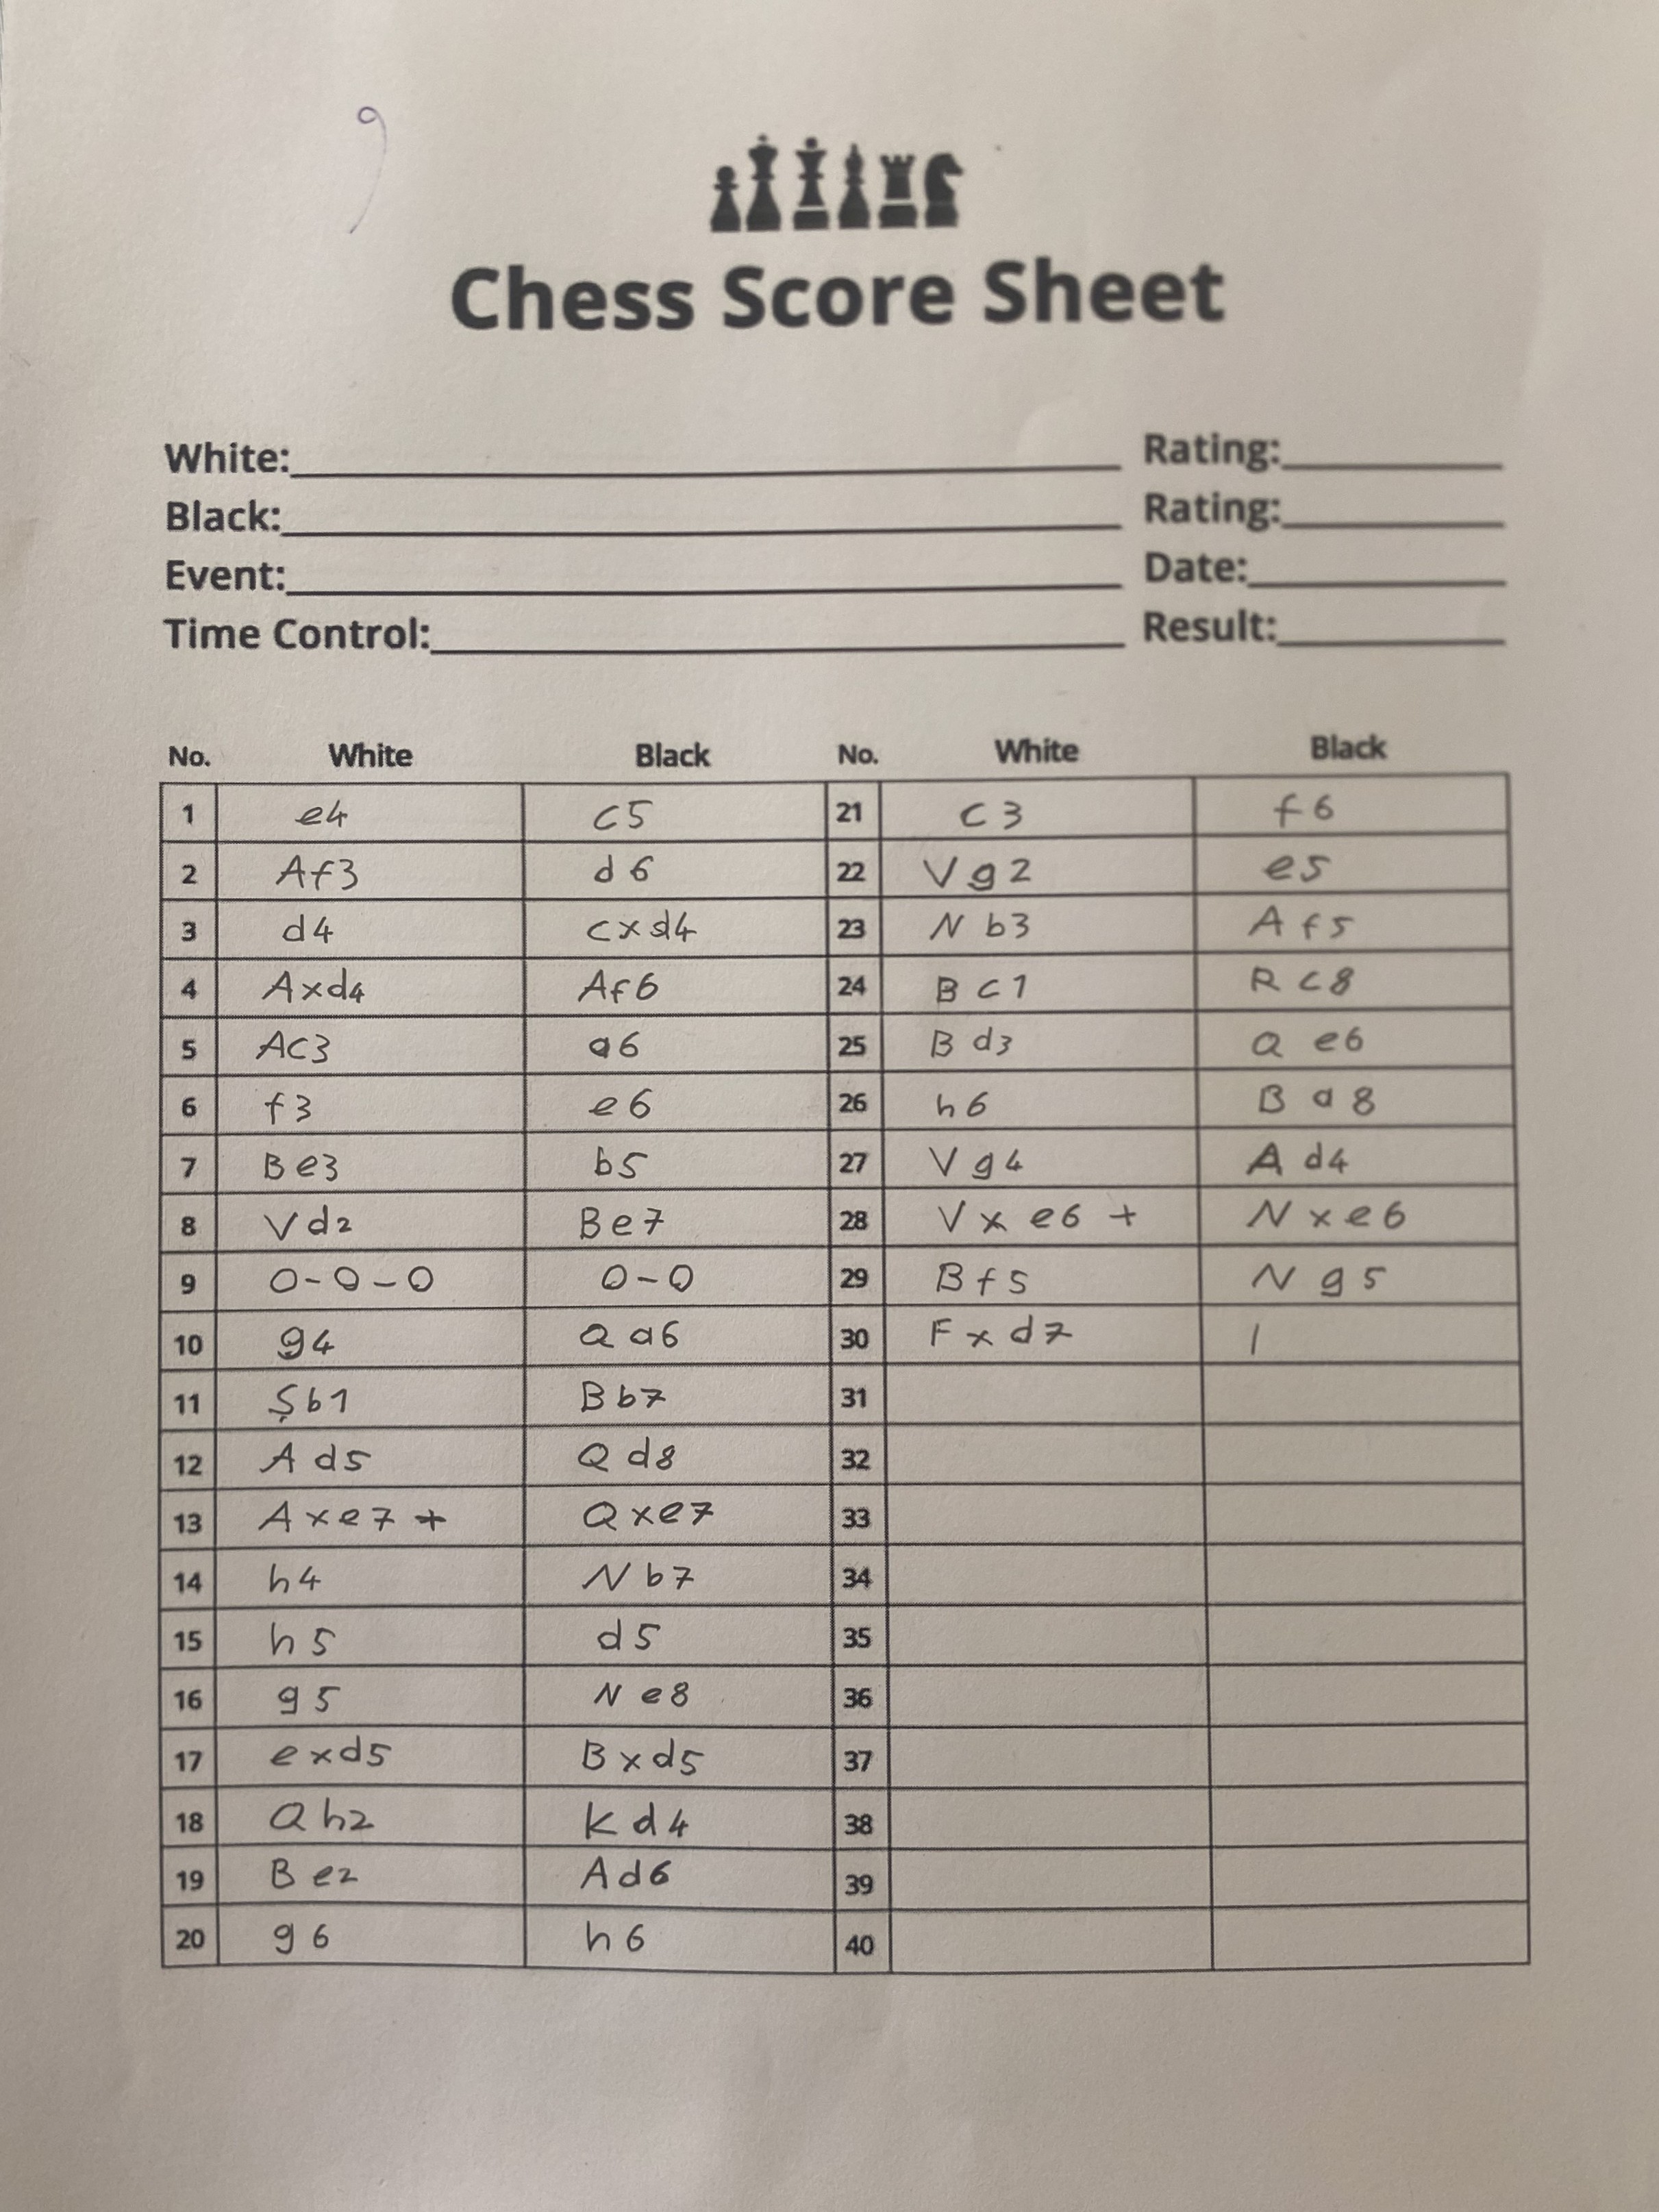 9
Chess Score Sheet
White: Rating:
Black: Rating:
Event: Date:
Time Control: Result:
No. White Black No. White Black
1 e4 c5 21 c3 f6
2 Af3 d6 22 Vg2 e5
3 d4 cxd4 23 Nb3 Af5
4 Axd4 Af6 24 Bc1 Rc8
5 Ac3 a6 25 Bd3 Qe6
6 f3 e6 26 h6 Ba8
7 Be3 b5 27 Vg4 Ad4
8 Vd2 Be7 28 Vxe6+ Nxe6
9 0-0-0 0-0 29 Bf5 Ng5
10 g4 Qa6 30 Fxd7 /
11 Şb1 Bb7 31
12 Ad5 Qd8 32
13 Axe7+ Qxe7 33
14 h4 Nb7 34
15 h5 d5 35
16 g5 Ne8 36
17 exd5 Bxd5 37
18 Qh2 Kd4 38
19 Be2 Ad6 39
20 g6 h6 40